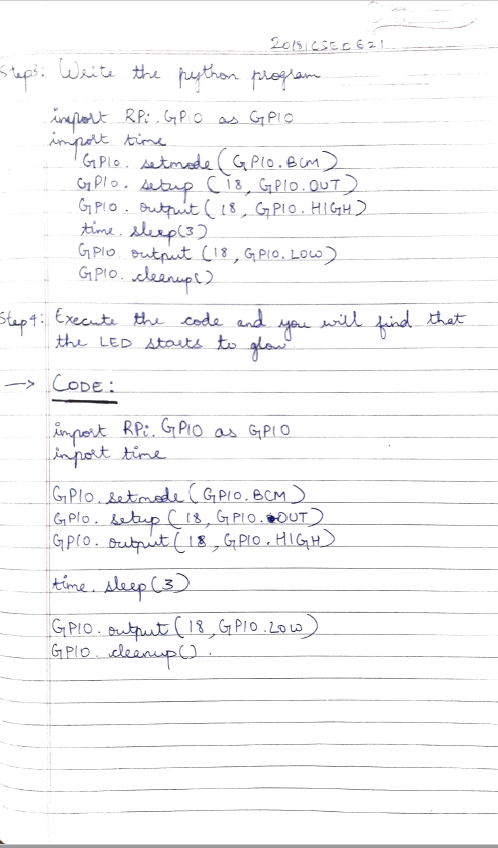 2018ICSEC621
Step3: Write the python program
import RPi.GPIO as GPIO
import time
GPIO.setmode(GPIO.BCM)
GPIO.setup(18, GPIO.OUT)
GPIO.output(18, GPIO.HIGH)
time.sleep(3)
GPIO output (18, GPIO.LOW)
GPIO.cleanup()
Step4: Execute the code and you will find that
the LED starts to glow
→ CODE:
import RPi.GPIO as GPIO
import time
GPIO.setmode(GPIO.BCM)
GPIO.setup(18, GPIO.OUT)
GPIO.output(18, GPIO.HIGH)
time.sleep(3)
GPIO.output(18, GPIO.LOW)
GPIO.cleanup().